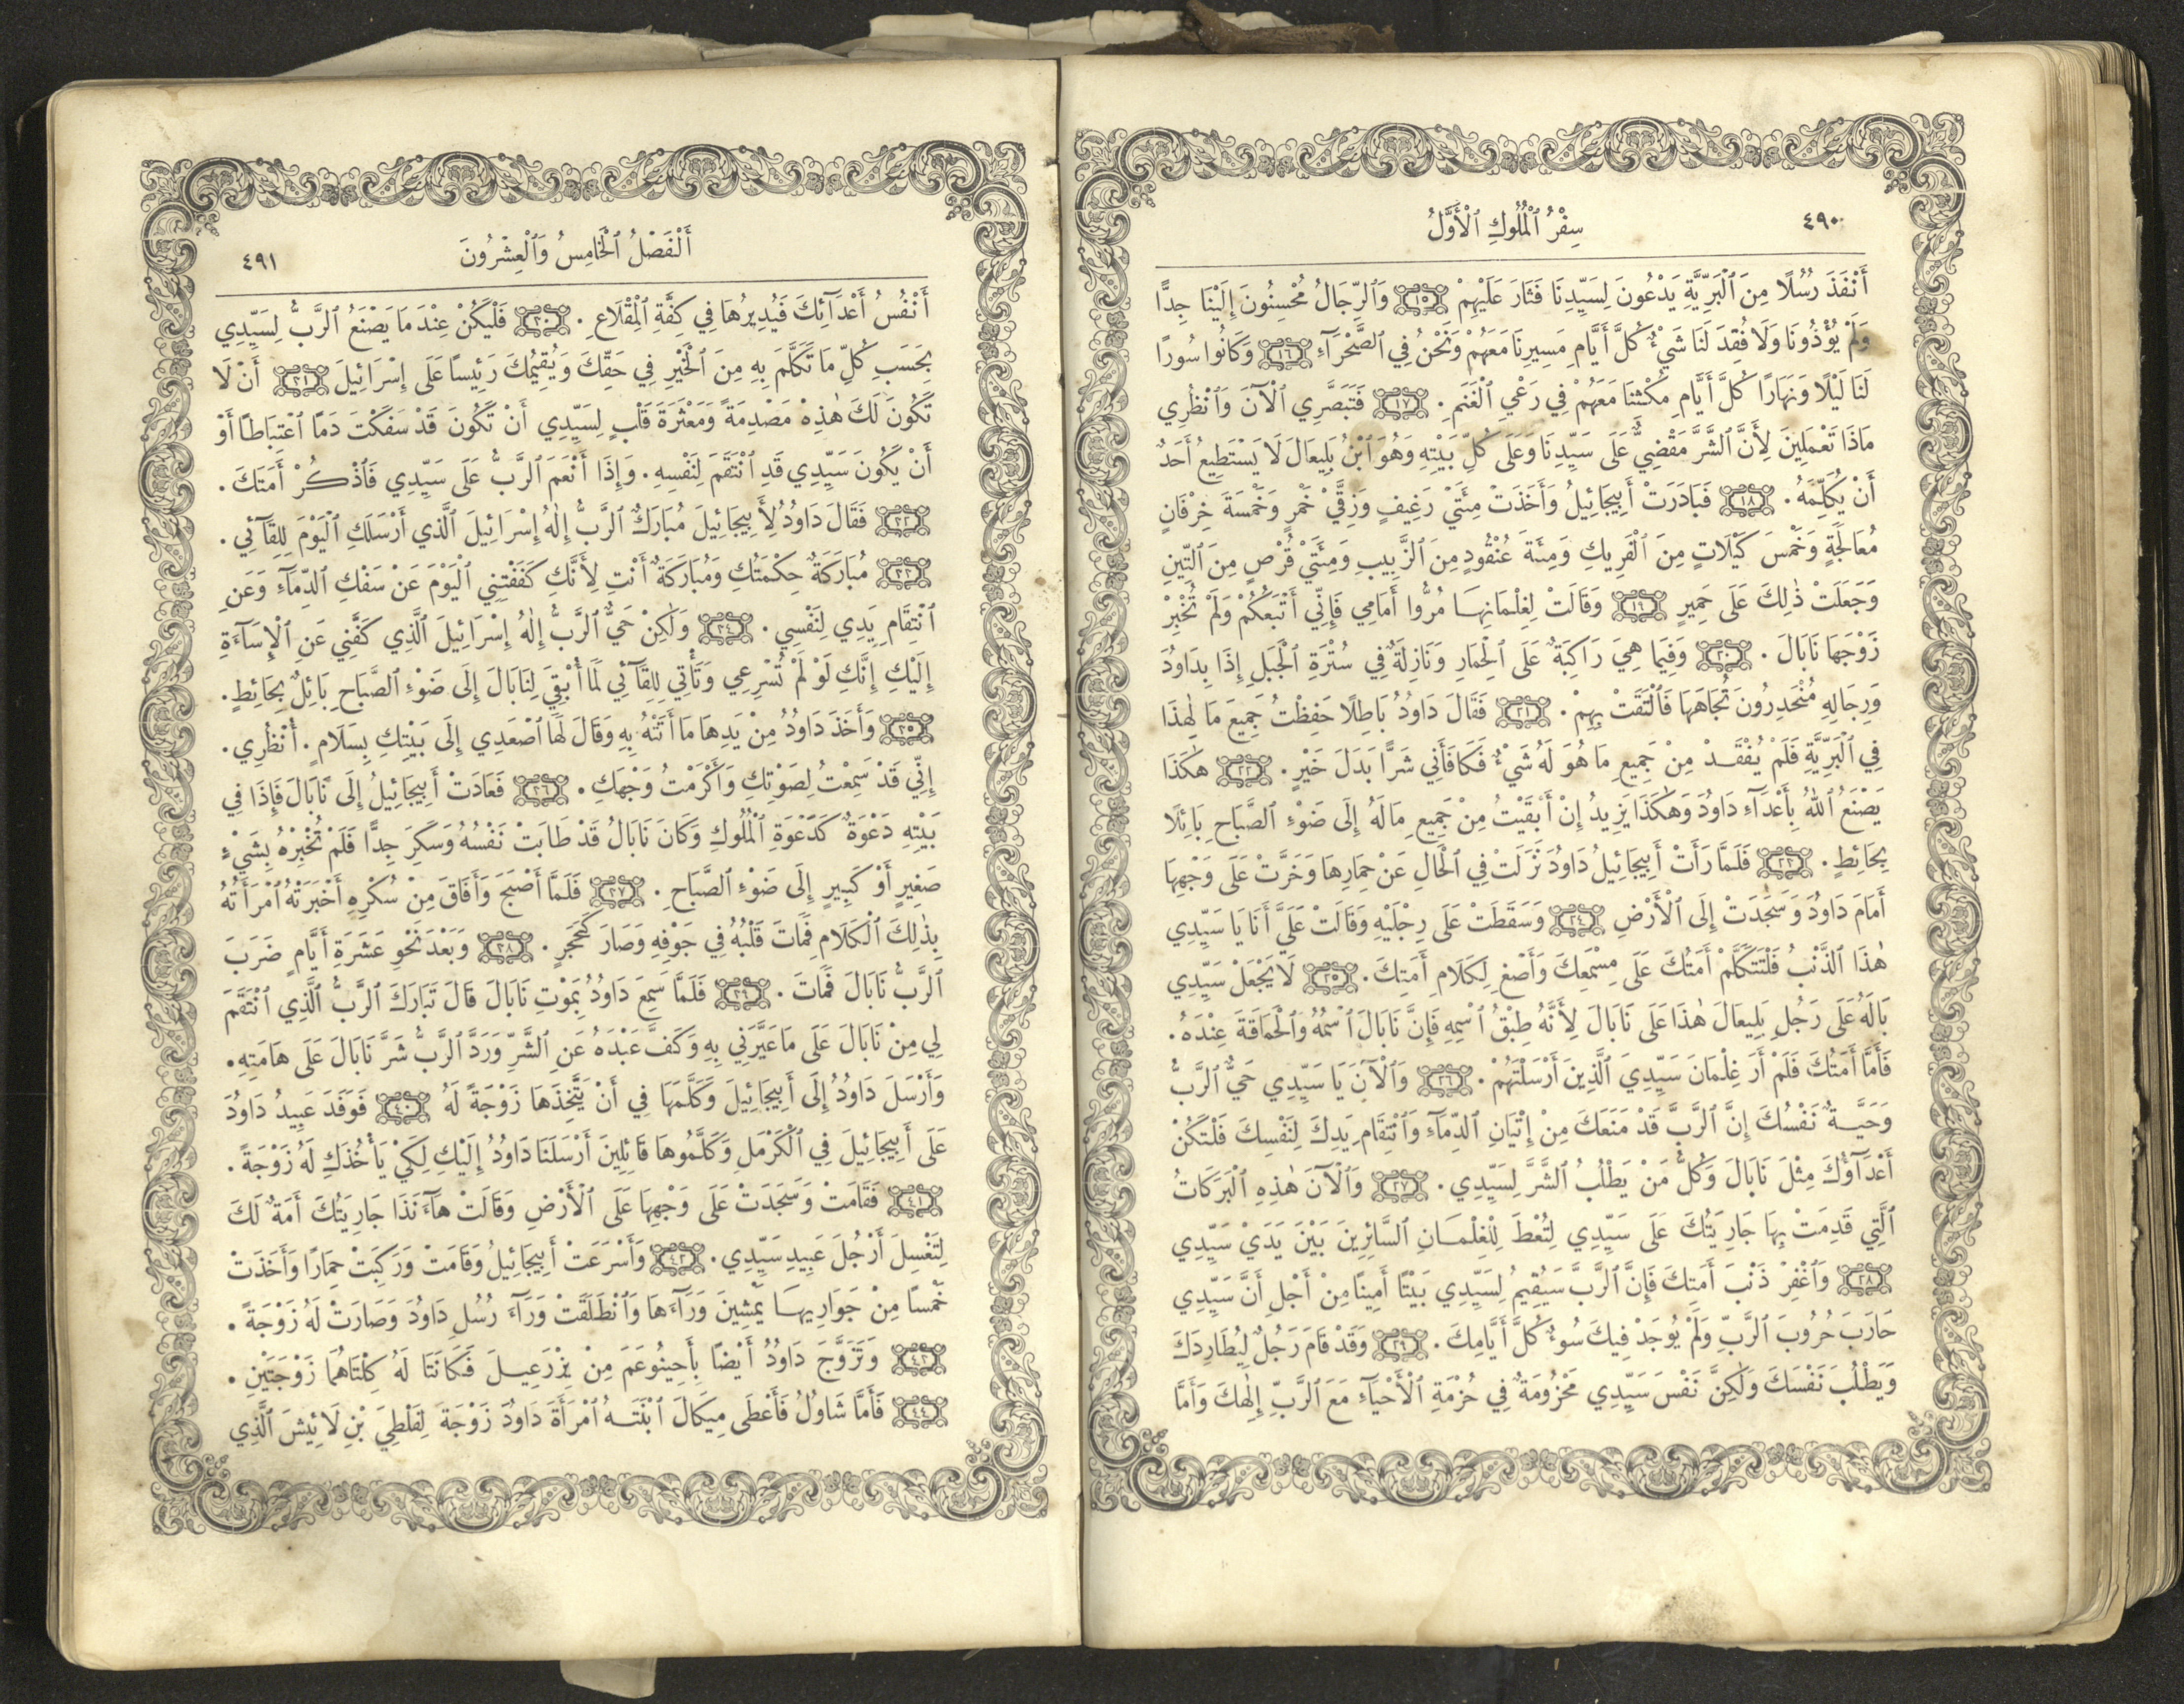 ٤٩٠ سِفْرُ ٱلْمُلُوكِ ٱلْأَوَّلُ
أَنْفَذَ رُسُلًا مِنَ ٱلْبَرِّيَّةِ يَدْعُونَ لِسَيِّدِنَا فَثَارَ عَلَيْهِمْ ١٥ وَٱلرِّجَالُ مُحْسِنُونَ إِلَيْنَا جِدًّا
وَلَمْ يُؤْذُونَا وَلَا فُقِدَ لَنَا شَيْءٌ كُلَّ أَيَّامِ مَسِيرِنَا مَعَهُمْ وَنَحْنُ فِي ٱلصَّحْرَآءِ ١٦ وَكَانُوا سُورًا
لَنَا لَيْلًا وَنَهَارًا كُلَّ أَيَّامِ مُكْثِنَا مَعَهُمْ فِي رَعْيِ ٱلْغَنَمِ. ١٧ فَتَبَصَّرِي ٱلْآنَ وَٱنْظُرِي
مَاذَا تَعْمَلِينَ لِأَنَّ ٱلشَّرَّ مَقْضِيٌّ عَلَى سَيِّدِنَا وَعَلَى كُلِّ بَيْتِهِ وَهُوَ ٱبْنُ بَلِيعَالَ لَا يَسْتَطِيعُ أَحَدٌ
أَنْ يُكَلِّمَهُ. ١٨ فَبَادَرَتْ أَبِيجَائِيلُ وَأَخَذَتْ مِئَتَيْ رَغِيفٍ وَزِقَّيْ خَمْرٍ وَخَمْسَةَ خِرْفَانٍ
مُعَالَجَةٍ وَخَمْسَ كَيْلَاتٍ مِنَ ٱلْفَرِيكِ وَمِئَةَ عُنْقُودٍ مِنَ ٱلزَّبِيبِ وَمِئَتَيْ قُرْصٍ مِنَ ٱلتِّينِ
وَجَعَلَتْ ذٰلِكَ عَلَى حَمِيرٍ ١٩ وَقَالَتْ لِغِلْمَانِهَا مُرُّوا أَمَامِي فَإِنِّي أَتْبَعُكُمْ وَلَمْ تُخْبِرْ
زَوْجَهَا نَابَالَ. ٢٠ وَفِيمَا هِيَ رَاكِبَةٌ عَلَى ٱلْحِمَارِ وَنَازِلَةٌ فِي سُتْرَةِ ٱلْجَبَلِ إِذَا بِدَاوُدَ
وَرِجَالِهِ مُنْحَدِرُونَ تُجَاهَهَا فَٱلْتَقَتْ بِهِمْ. ٢١ فَقَالَ دَاوُدُ بَاطِلًا حَفِظْتُ جَمِيعَ مَا لِهٰذَا
فِي ٱلْبَرِّيَّةِ فَلَمْ يُفْقَدْ مِنْ جَمِيعِ مَا هُوَ لَهُ شَيْءٌ فَكَافَأَنِي شَرًّا بَدَلَ خَيْرٍ. ٢٢ هٰكَذَا
يَصْنَعُ ٱللهُ بِأَعْدَآءِ دَاوُدَ وَهٰكَذَا يَزِيدُ إِنْ أَبْقَيْتُ مِنْ جَمِيعِ مَا لَهُ إِلَى ضَوْءِ ٱلصَّبَاحِ بَائِلًا
بِحَائِطٍ. ٢٣ فَلَمَّا رَأَتْ أَبِيجَائِيلُ دَاوُدَ نَزَلَتْ فِي ٱلْحَالِ عَنْ حِمَارِهَا وَخَرَّتْ عَلَى وَجْهِهَا
أَمَامَ دَاوُدَ وَسَجَدَتْ إِلَى ٱلْأَرْضِ ٢٤ وَسَقَطَتْ عَلَى رِجْلَيْهِ وَقَالَتْ عَلَيَّ أَنَا يَا سَيِّدِي
هٰذَا ٱلذَّنْبُ فَلْتَتَكَلَّمْ أَمَتُكَ عَلَى مِسْمَعِكَ وَأَصْغِ لِكَلَامِ أَمَتِكَ. ٢٥ لَا يَجْعَلْ سَيِّدِي
بَالَهُ عَلَى رَجُلِ بَلِيعَالَ هٰذَا عَلَى نَابَالَ لِأَنَّهُ طِبْقُ ٱسْمِهِ فَإِنَّ نَابَالَ ٱسْمُهُ وَٱلْحَمَاقَةَ عِنْدَهُ.
فَأَمَّا أَمَتُكَ فَلَمْ أَرَ غِلْمَانَ سَيِّدِيَ ٱلَّذِينَ أَرْسَلْتَهُمْ. ٢٦ وَٱلْآنَ يَا سَيِّدِي حَيٌّ ٱلرَّبُّ
وَحَيَّةٌ نَفْسُكَ إِنَّ ٱلرَّبَّ قَدْ مَنَعَكَ مِنْ إِتْيَانِ ٱلدِّمَآءِ وَٱنْتِقَامِ يَدِكَ لِنَفْسِكَ فَلْتَكُنْ
أَعْدَآؤُكَ مِثْلَ نَابَالَ وَكُلُّ مَنْ يَطْلُبُ ٱلشَّرَّ لِسَيِّدِي. ٢٧ وَٱلْآنَ هٰذِهِ ٱلْبَرَكَاتُ
ٱلَّتِي قَدِمَتْ بِهَا جَارِيَتُكَ عَلَى سَيِّدِي لِتُعْطَ لِلْغِلْمَانِ ٱلسَّائِرِينَ بَيْنَ يَدَيْ سَيِّدِي
٢٨ وَٱغْفِرْ ذَنْبَ أَمَتِكَ فَإِنَّ ٱلرَّبَّ سَيُقِيمُ لِسَيِّدِي بَيْتًا أَمِينًا مِنْ أَجْلِ أَنَّ سَيِّدِي
حَارَبَ حُرُوبَ ٱلرَّبِّ وَلَمْ يُوجَدْ فِيكَ سُوءٌ كُلَّ أَيَّامِكَ. ٢٩ وَقَدْ قَامَ رَجُلٌ لِيُطَارِدَكَ
وَيَطْلُبَ نَفْسَكَ وَلٰكِنَّ نَفْسَ سَيِّدِي مَحْزُومَةٌ فِي حُزْمَةِ ٱلْأَحْيَآءِ مَعَ ٱلرَّبِّ إِلٰهِكَ وَأَمَّا
أَلْفَصْلُ ٱلْخَامِسُ وَٱلْعِشْرُونَ ٤٩١
أَنْفُسُ أَعْدَآئِكَ فَيُدِيرُهَا فِي كِفَّةِ ٱلْمِقْلَاعِ. ٣٠ فَلْيَكُنْ عِنْدَ مَا يَصْنَعُ ٱلرَّبُّ لِسَيِّدِي
بِحَسَبِ كُلِّ مَا تَكَلَّمَ بِهِ مِنَ ٱلْخَيْرِ فِي حَقِّكَ وَيُقِيمُكَ رَئِيسًا عَلَى إِسْرَائِيلَ ٣١ أَنْ لَا
تَكُونَ لَكَ هٰذِهْ مَصْدِمَةً وَمَعْثَرَةَ قَلْبٍ لِسَيِّدِي أَنْ تَكُونَ قَدْ سَفَكْتَ دَمًا ٱعْتِبَاطًا أَوْ
أَنْ يَكُونَ سَيِّدِي قَدِ ٱنْتَقَمَ لِنَفْسِهِ. وَإِذَا أَنْعَمَ ٱلرَّبُّ عَلَى سَيِّدِي فَٱذْكُرْ أَمَتَكَ.
٣٢ فَقَالَ دَاوُدُ لِأَبِيجَائِيلَ مُبَارَكٌ ٱلرَّبُّ إِلٰهُ إِسْرَائِيلَ ٱلَّذِي أَرْسَلَكِ ٱلْيَوْمَ لِلِقَآئِي.
٣٣ مُبَارَكَةٌ حِكْمَتُكِ وَمُبَارَكَةٌ أَنْتِ لِأَنَّكِ كَفَفْتِنِي ٱلْيَوْمَ عَنْ سَفْكِ ٱلدِّمَآءِ وَعَنِ
ٱنْتِقَامِ يَدِي لِنَفْسِي. ٣٤ وَلٰكِنْ حَيٌّ ٱلرَّبُّ إِلٰهُ إِسْرَائِيلَ ٱلَّذِي كَفَّنِي عَنِ ٱلْإِسَآءَةِ
إِلَيْكِ إِنَّكِ لَوْ لَمْ تُسْرِعِي وَتَأْتِي لِلِقَآئِي لَمَا أُبْقِيَ لِنَابَالَ إِلَى ضَوْءِ ٱلصَّبَاحِ بَائِلٌ بِحَائِطٍ.
٣٥ وَأَخَذَ دَاوُدُ مِنْ يَدِهَا مَا أَتَتْهُ بِهِ وَقَالَ لَهَا ٱصْعَدِي إِلَى بَيْتِكِ بِسَلَامٍ. أُنْظُرِي.
إِنِّي قَدْ سَمِعْتُ لِصَوْتِكِ وَأَكْرَمْتُ وَجْهَكِ. ٣٦ فَعَادَتْ أَبِيجَائِيلُ إِلَى نَابَالَ فَإِذَا فِي
بَيْتِهِ دَعْوَةٌ كَدَعْوَةِ ٱلْمُلُوكِ وَكَانَ نَابَالُ قَدْ طَابَتْ نَفْسُهُ وَسَكِرَ جِدًّا فَلَمْ تُخْبِرْهُ بِشَيْءٍ
صَغِيرٍ أَوْ كَبِيرٍ إِلَى ضَوْءِ ٱلصَّبَاحِ. ٣٧ فَلَمَّا أَصْبَحَ وَأَفَاقَ مِنْ سُكْرِهِ أَخْبَرَتْهُ ٱمْرَأَتُهُ
بِذٰلِكَ ٱلْكَلَامِ فَمَاتَ قَلْبُهُ فِي جَوْفِهِ وَصَارَ كَحَجَرٍ. ٣٨ وَبَعْدَ نَحْوِ عَشَرَةِ أَيَّامٍ ضَرَبَ
ٱلرَّبُّ نَابَالَ فَمَاتَ. ٣٩ فَلَمَّا سَمِعَ دَاوُدُ بِمَوْتِ نَابَالَ قَالَ تَبَارَكَ ٱلرَّبُّ ٱلَّذِي ٱنْتَقَمَ
لِي مِنْ نَابَالَ عَلَى مَا عَيَّرَنِي بِهِ وَكَفَّ عَبْدَهُ عَنِ ٱلشَّرِّ وَرَدَّ ٱلرَّبُّ شَرَّ نَابَالَ عَلَى هَامَتِهِ.
وَأَرْسَلَ دَاوُدُ إِلَى أَبِيجَائِيلَ وَكَلَّمَهَا فِي أَنْ يَتَّخِذَهَا زَوْجَةً لَهُ ٤٠ فَوَفَدَ عَبِيدُ دَاوُدَ
عَلَى أَبِيجَائِيلَ فِي ٱلْكَرْمَلِ وَكَلَّمُوهَا قَائِلِينَ أَرْسَلَنَا دَاوُدُ إِلَيْكِ لِكَيْ يَأْخُذَكِ لَهُ زَوْجَةً.
٤١ فَقَامَتْ وَسَجَدَتْ عَلَى وَجْهِهَا عَلَى ٱلْأَرْضِ وَقَالَتْ هَآءَنَذَا جَارِيَتُكَ أَمَةٌ لَكَ
لِتَغْسِلَ أَرْجُلَ عَبِيدِ سَيِّدِي. ٤٢ وَأَسْرَعَتْ أَبِيجَائِيلُ وَقَامَتْ وَرَكِبَتْ حِمَارًا وَأَخَذَتْ
خَمْسًا مِنْ جَوَارِيهَا يَمْشِينَ وَرَآءَهَا وَٱنْطَلَقَتْ وَرَآءَ رُسُلِ دَاوُدَ وَصَارَتْ لَهُ زَوْجَةً.
٤٣ وَتَزَوَّجَ دَاوُدُ أَيْضًا بِأَحِينُوعَمَ مِنْ يِزْرَعِيلَ فَكَانَتَا لَهُ كِلْتَاهُمَا زَوْجَتَيْنِ.
٤٤ فَأَمَّا شَاوُلُ فَأَعْطَى مِيكَالَ ٱبْنَتَهُ ٱمْرَأَةَ دَاوُدَ زَوْجَةً لِفَلْطِيَ بْنِ لَائِيشَ ٱلَّذِي